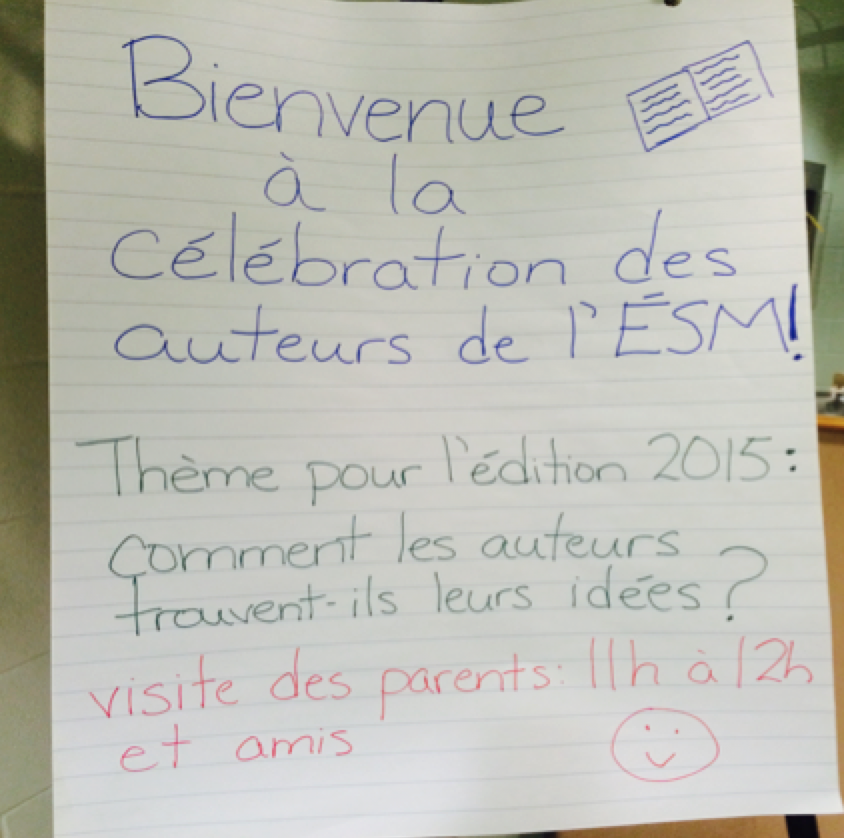 Bienvenue
à la
Célébration des
auteurs de l'ÉSM!
Thème pour l'édition 2015:
Comment les auteurs
trouvent-ils leurs idées?
visite des parents: 11h à 12h
et amis